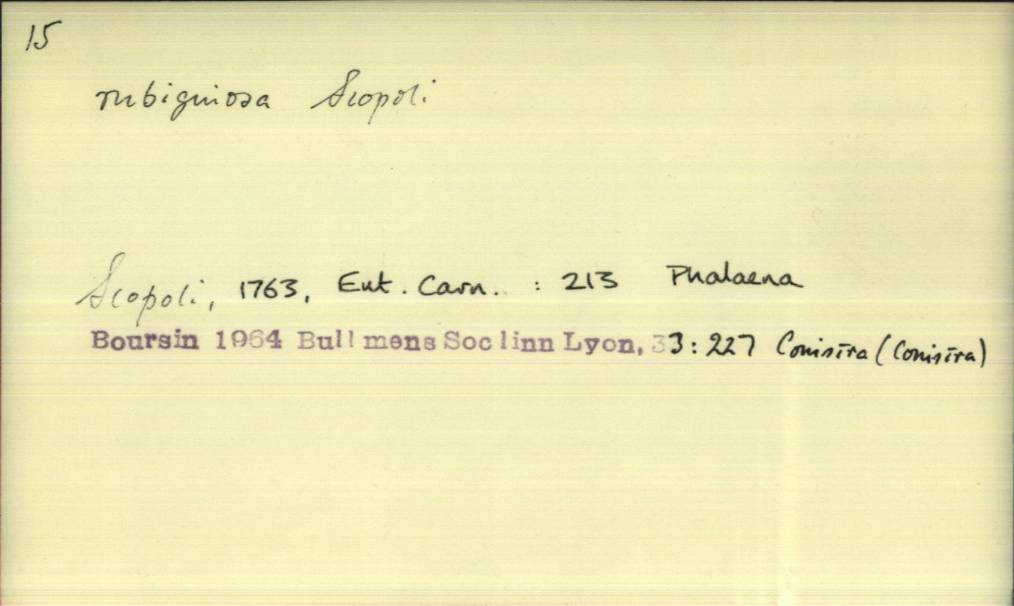 15
rubiginosa Scopoli
Scopoli, 1763, Ent. Carn. : 213 Phalaena
Boursin 1964 Bull mens Soc linn Lyon, 33: 227 Conistra (Conistra)